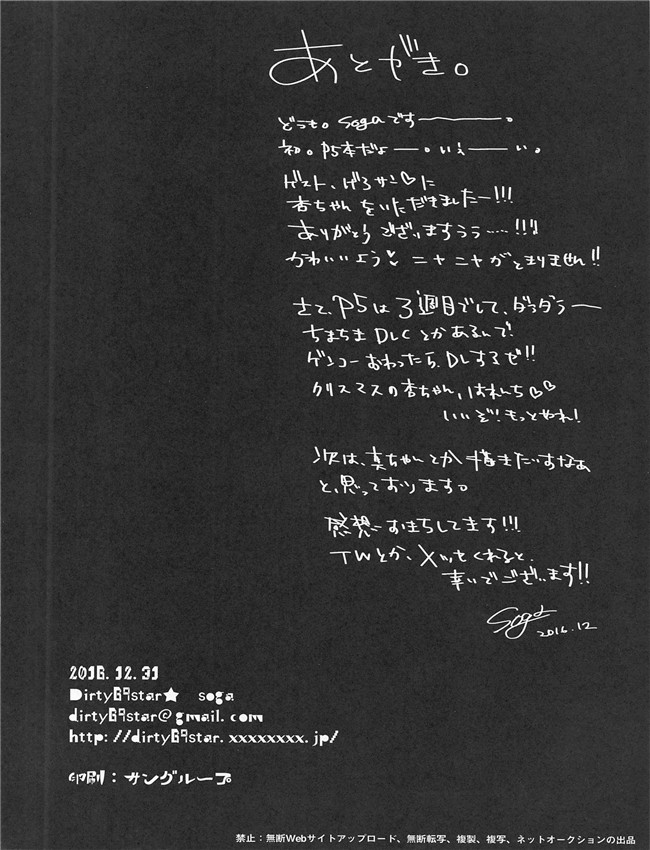 あとがき。
どうも。sogaです――。
初。P5本だよ―。いえ――い。
ゲスト、げろサン♡に
杏ちゃんをいただきましたー!!!
ありがとうございますうう……!!!
かわいいよう♥ニヤニヤがとまりません!!
さて、P5は3週目でして、ダラダラ―
ちまちまDLCとかあるんで
ゲンコーおわったら、DLするぜ!!
クリスマスの杏ちゃん、はれんち♡♡
いいぞ!もっとやれ!
次は、真ちゃんとか描きたいすなあ
と、思っております。
感想おまちしてます!!!
TWとか、メッセくれると、
幸いでございます!!
Soga
2016.12
2016.12.31
Dirty69star★ soga
dirty69star@gmail.com
http://dirty69star.xxxxxxxx.jp/
印刷：サングループ
禁止：無断Webサイトアップロード、無断転写、複製、複写、ネットオークションの出品